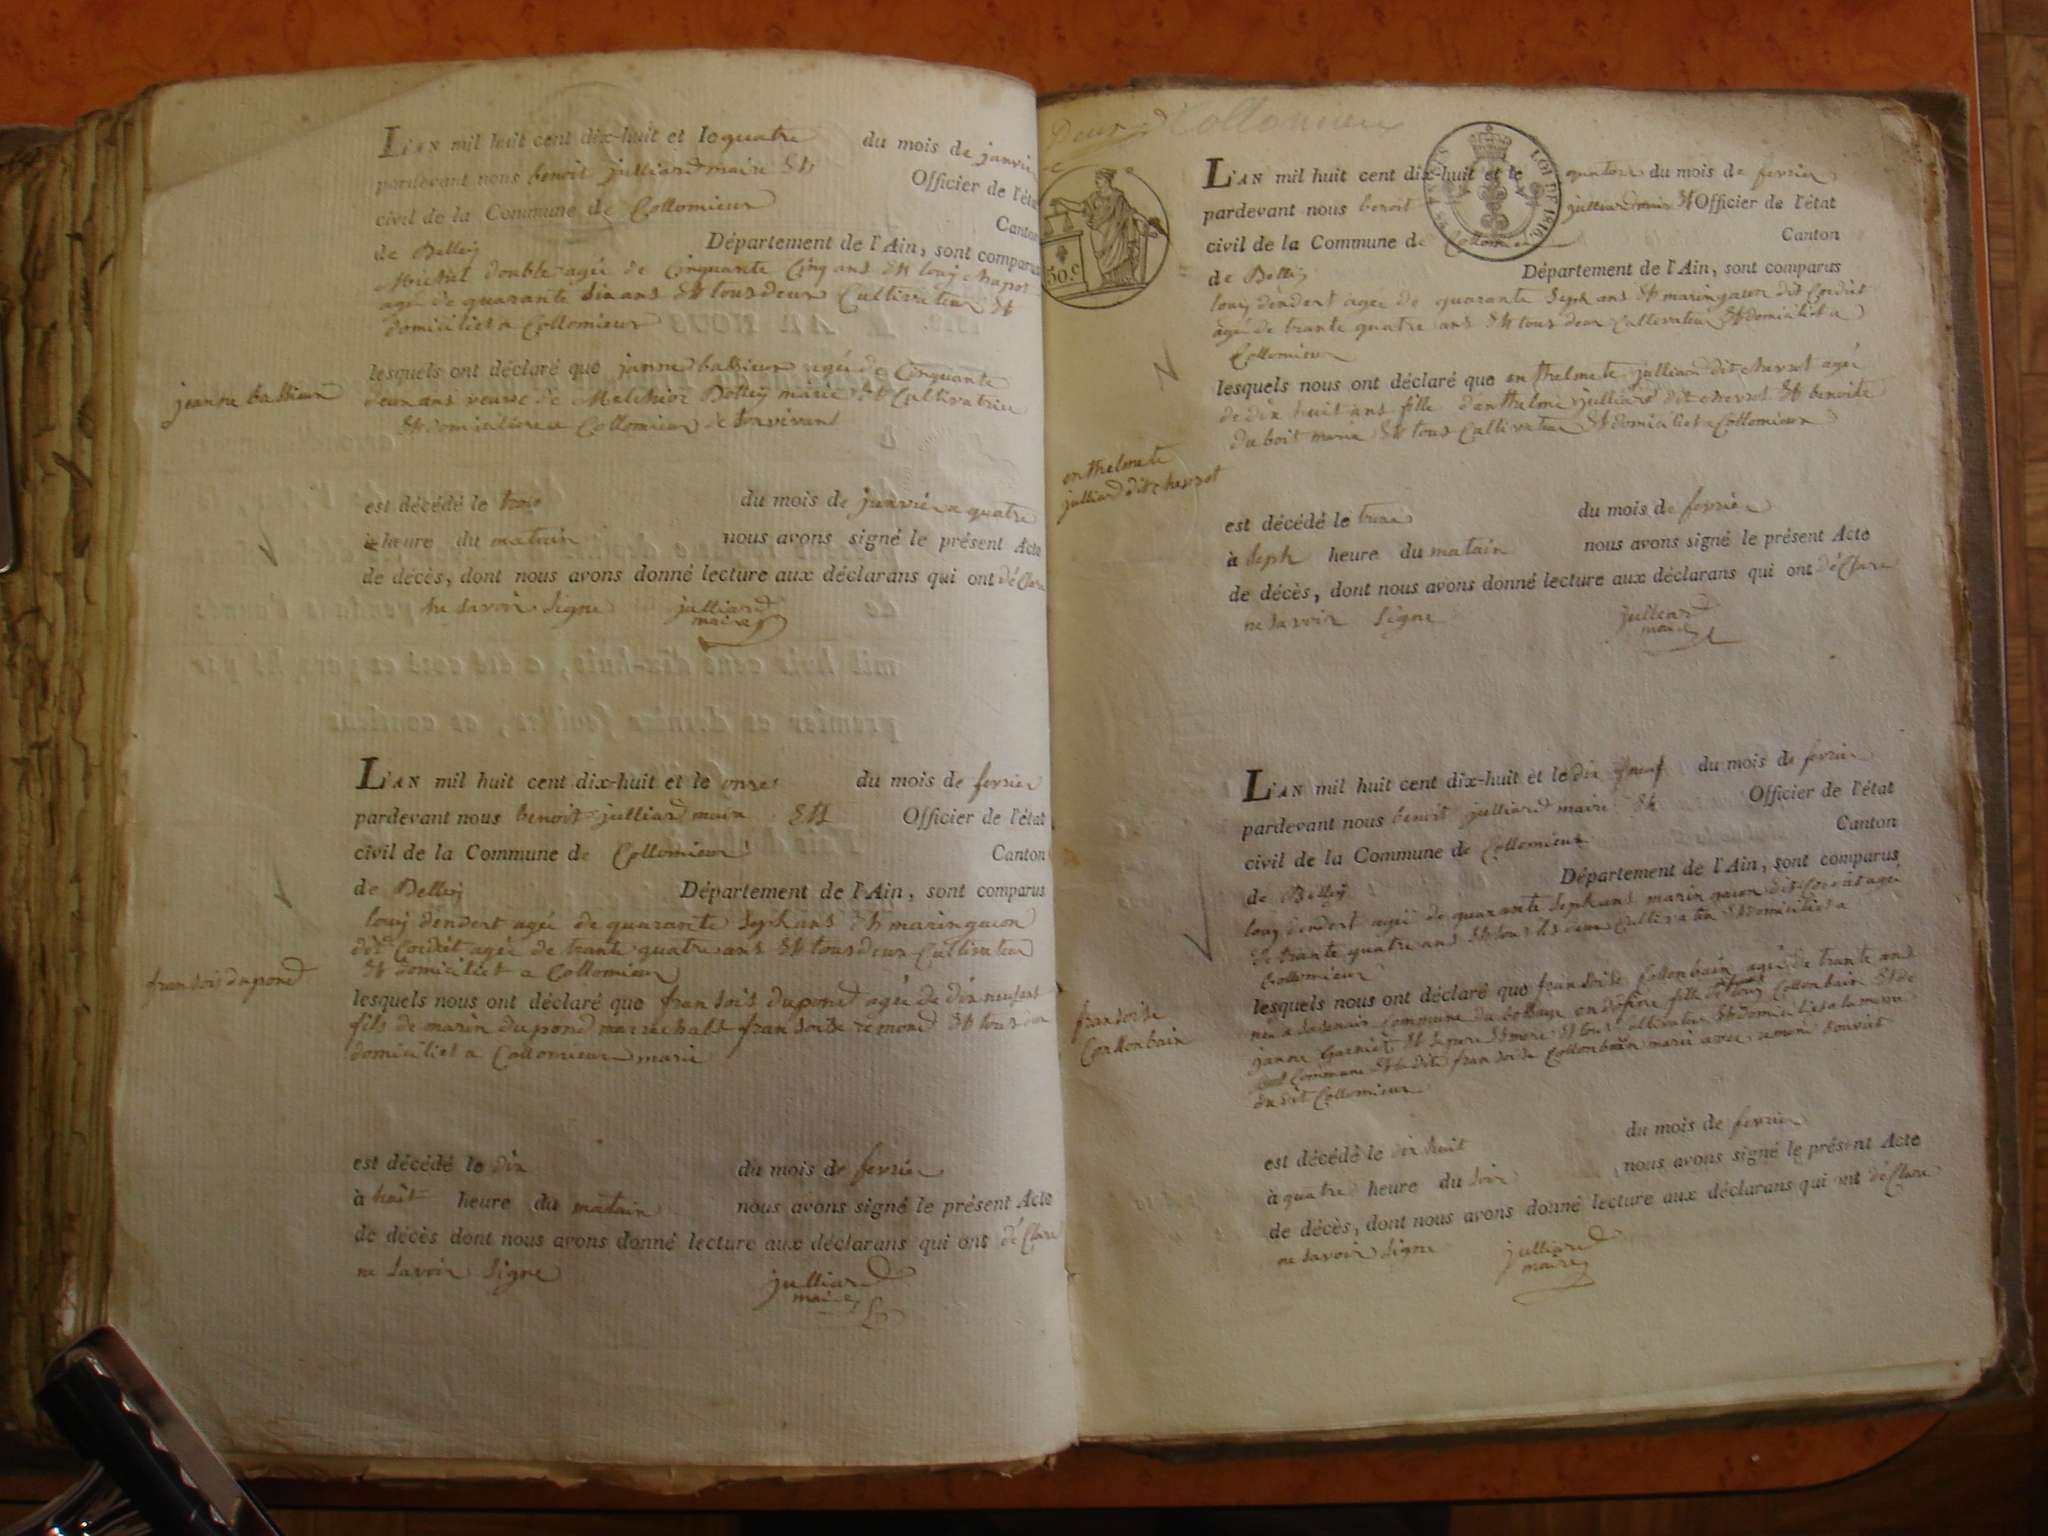 L'AN mil huit cent dix-huit et le quatre du mois de janvie
pardevant nous benoit julliard maire Et Officier de l'état
civil de la Commune de Collomieux Canton
de Belley Département de l'Ain, sont comparus
Michel double agée de Cinquante Cinq ans Et louij chapot
agé de quarante six ans Et tous deux Cultivateur Et
domiciliet a Collomieux
lesquels ont déclaré que janne battieux agée de Cinquante
deux ans veuve de Melchior Bolley marié Et Cultivatrice
Et domiciliée a Collomieux de Son vivant
jeanne battieux
est décédé le trois du mois de janvié a quatre
heure du matain nous avons signé le présent Acte
de décès, dont nous avons donné lecture aux déclarans qui ont déClare
ne savoir signe julliard
maire
L'AN mil huit cent dix-huit et le onze du mois de fevrier
pardevant nous benoit julliard maire Et Officier de l'état
civil de la Commune de Collomieux Canton
de Belley Département de l'Ain, sont comparus
louij dendert agée de quarante Seph ans Et marin guion
dit Cordet agée de trante quatre ans Et tous deux Cultivateur
Et domiciliet a Collomieux
lesquels nous ont déclaré que fransois dupond agée de dix neuf ans
fils de marin dupond marechalt fransoise remond Et tous
domiciliet a Collomieux marié
fransois dupond
est décédé le dix du mois de fevrier
à huit heure du matain nous avons signé le présent Acte
de décès dont nous avons donné lecture aux déclarans qui ont déClare
ne savoir signe julliard
maire
Deux Collomieu
50.c
LOI DE 1816
L'AN mil huit cent dix-huit et le quatorze du mois de fevrier
pardevant nous benoit julliard maire Et Officier de l'état
civil de la Commune de Collomieux Canton
de Belley Département de l'Ain, sont comparus
louij dendert agée de quarante Seph ans Et marin guion dit Cordet
agée de trante quatre ans Et tous deux Cultivateur Et domiciliet a
Collomieux
lesquels nous ont déclaré que anthelmete julliard dit chevrot agée
de dix huit ans fille d'anthelme julliard dit chevrot Et benoite
duboit marié Et tous Cultivateur Et domiciliet a Collomieux
anthelmete
julliard dit chevrot
est décédé le treze du mois de fevrier
à Seph heure du matain nous avons signé le présent Acte
de décès, dont nous avons donné lecture aux déclarans qui ont déClare
ne savoir signe julliard
maire
L'AN mil huit cent dix-huit et le dix neuf du mois de fevrier
pardevant nous benoit julliard maire Et Officier de l'état
civil de la Commune de Collomieux Canton
de Belley Département de l'Ain, sont comparus
louij dendert agée de quarante Seph ans marin guion dit Cordet agée
de trante quatre ans Et tous deux Cultivateur Et domiciliet a
Collomieux
lesquels nous ont déclaré que fransoise Collonbain agée de trante ans
née a Commune du bottage en dofine fille de louij Collonbain Et de
janne Garnier Et Se pere Et mere Et tous Cultivateur Et domiciliet a la meme
Commune Et la dite fransoise Collonbain marié avec
du dit Collomieux
fransoise
Conllonbain
est décédé le dix huit du mois de fevrier
à quatre heure du soir nous avons signé le présent Acte
de décès, dont nous avons donné lecture aux déclarans qui ont déClare
ne savoir signe julliard
maire